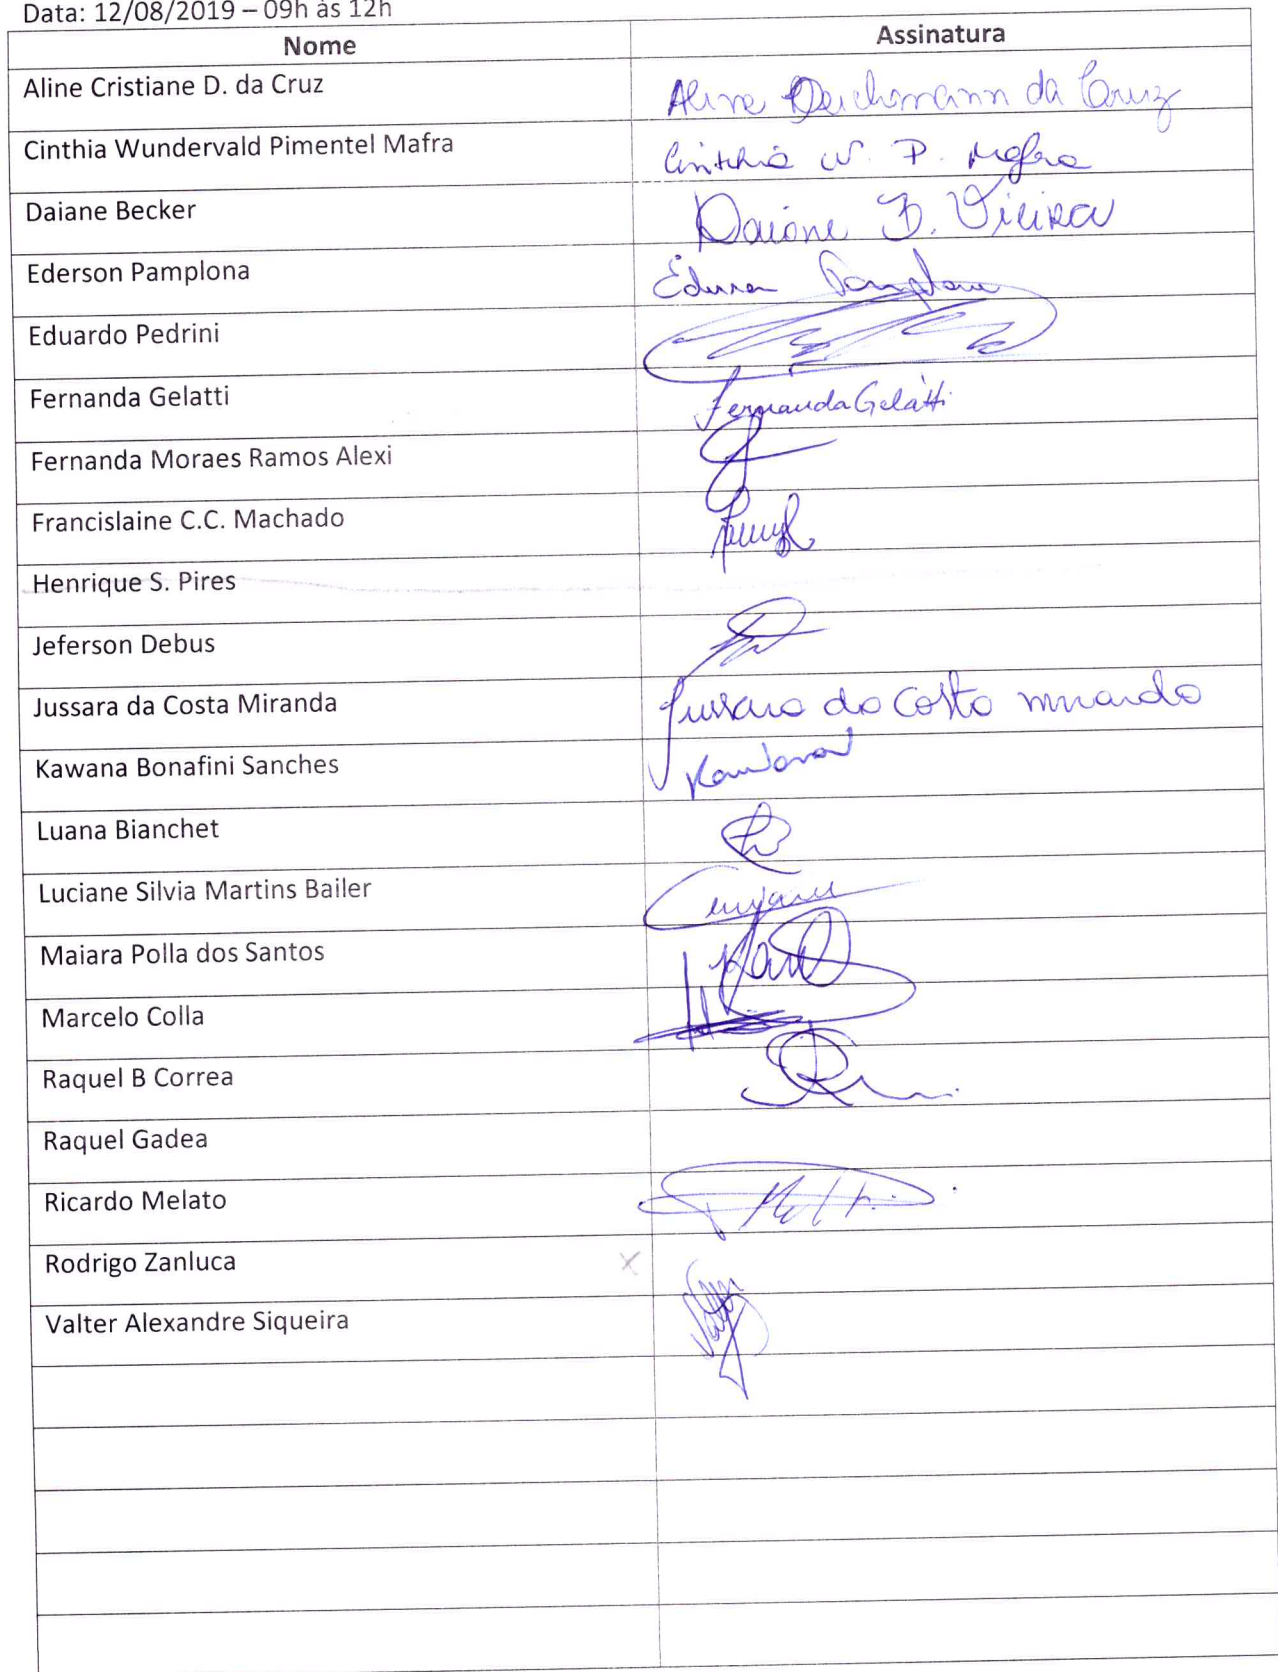 Data: 12/08/2019 – 09h às 12h
Nome Assinatura
Aline Cristiane D. da Cruz Aline Deichmann da Cruz
Cinthia Wundervald Pimentel Mafra Cinthia W. P. Mafra
Daiane Becker Daiane B. Vieira
Ederson Pamplona Ederson Pamplona
Eduardo Pedrini
Fernanda Gelatti Fernanda Gelatti
Fernanda Moraes Ramos Alexi
Francislaine C.C. Machado
Henrique S. Pires
Jeferson Debus
Jussara da Costa Miranda Jussara da Costa Miranda
Kawana Bonafini Sanches Kawana
Luana Bianchet
Luciane Silvia Martins Bailer
Maiara Polla dos Santos
Marcelo Colla
Raquel B Correa
Raquel Gadea
Ricardo Melato
Rodrigo Zanluca X
Valter Alexandre Siqueira